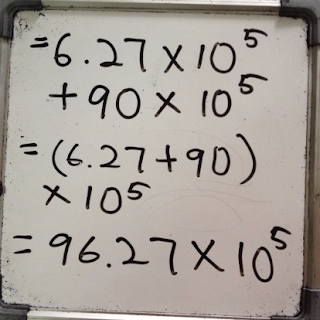 =6.27×10⁵
+90×10⁵
=(6.27+90)
×10⁵
=96.27×10⁵